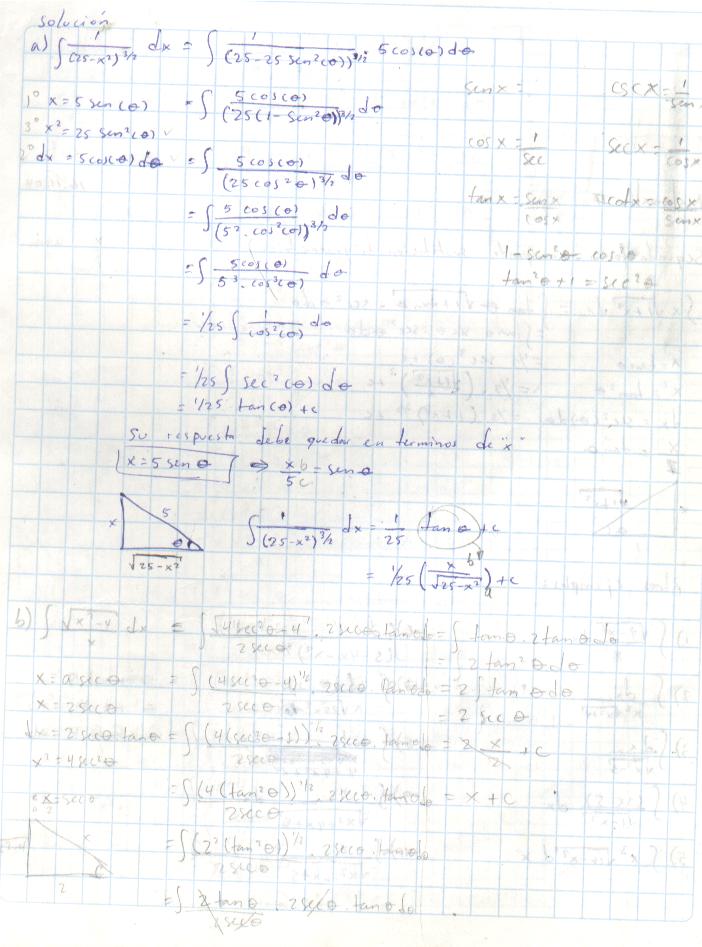 solución
a) ∫ 1/(25-x²)^3/2 dx = ∫ 1/(25-25 sen²(θ))^3/2 · 5cos(θ)dθ
1° x=5 sen(θ) = ∫ 5cos(θ)/(25(1-sen²θ))^3/2 dθ
3° x²=25 sen²(θ)
2° dx=5cos(θ)dθ = ∫ 5cos(θ)/(25cos²θ)^3/2 dθ
= ∫ 5 cos(θ)/(5²·cos²(θ))^3/2 dθ
= ∫ 5cos(θ)/5³·cos³(θ) dθ
= 1/25 ∫ 1/cos²(θ) dθ
= 1/25 ∫ sec²(θ) dθ
= 1/25 tan(θ)+c
senx= cscx=1/sen
cosx=1/sec secx=1/cosx
tanx=senx/cosx cotx=cosx/senx
1-sen²θ=cos²θ
tan²θ+1=sec²θ
Su respuesta debe quedar en terminos de "x"
x=5senθ ⇒ x b/5 c = senθ
x 5 θ √25-x²
∫ 1/(25-x²)^3/2 dx = 1/25 tanθ+c
= 1/25 (x b/√25-x² a)+c
b) ∫ √x²-4/x dx = ∫ √4sec²θ-4/2secθ · 2secθ·tanθdθ = ∫ tanθ·2tanθdθ
= ∫ 2tan²θdθ
x=asecθ = ∫ (4sec²θ-4)^1/2/2secθ · 2secθ tanθdθ = 2∫tan²θdθ
x=2secθ = 2 secθ
dx=2secθ·tanθ = ∫ (4(sec²θ-1))^1/2/2secθ · 2secθ·tanθdθ = 2 x/2 +c
x²=4sec²θ
= ∫ (4(tan²θ))^1/2/2secθ · 2secθ·tanθdθ = x+c
x/2=secθ
= ∫ (2²(tan²θ))^1/2/2secθ · 2secθ·tanθdθ
x
2
= ∫ 2tanθ/2secθ · 2secθ·tanθdθ